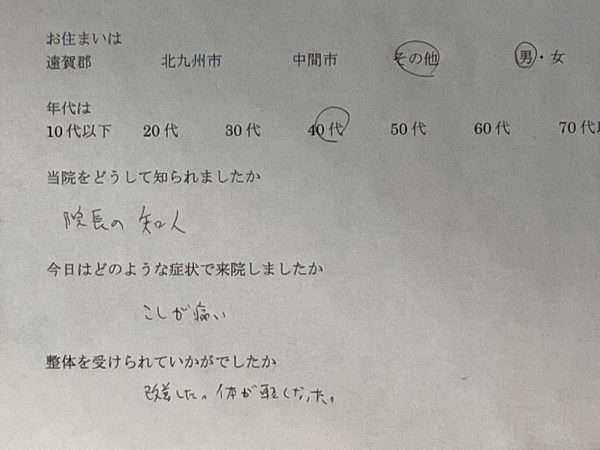 お住まいは
遠賀郡 北九州市 中間市 その他 男・女
年代は
10代以下 20代 30代 40代 50代 60代 70代以
当院をどうして知られましたか
院長の知人
今日はどのような症状で来院しましたか
こしが痛い
整体を受けられていかがでしたか
改善した。体が軽くなった。